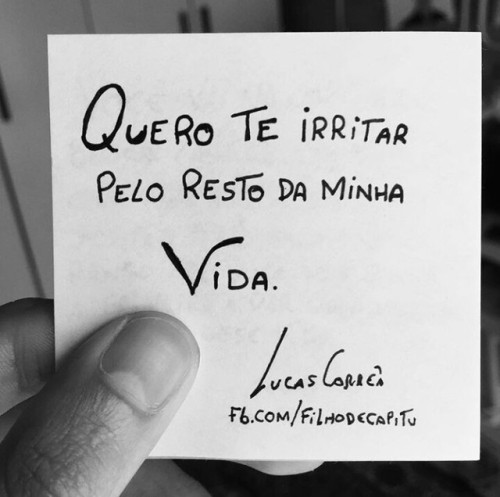 Quero te irritar
pelo resto da minha
Vida.
Lucas Corrêa
fb.com/filhodecapitu